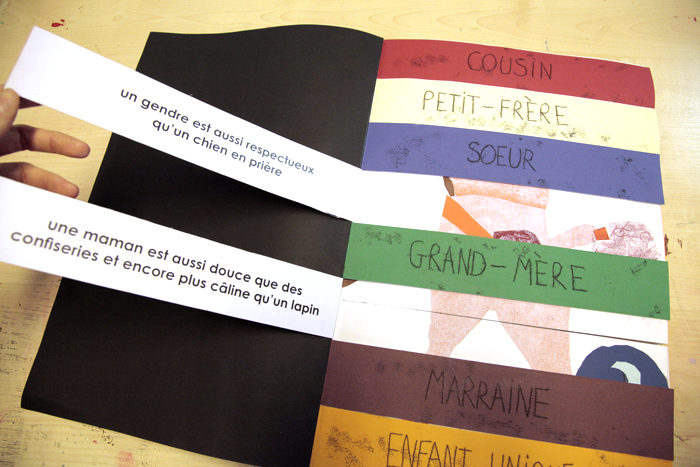 un gendre est aussi respectueux
qu'un chien en prière
une maman est aussi douce que des
confiseries et encore plus câline qu'un lapin
COUSIN
PETIT-FRÈRE
SOEUR
GRAND-MÈRE
MARRAINE
ENFANT UNIQUE